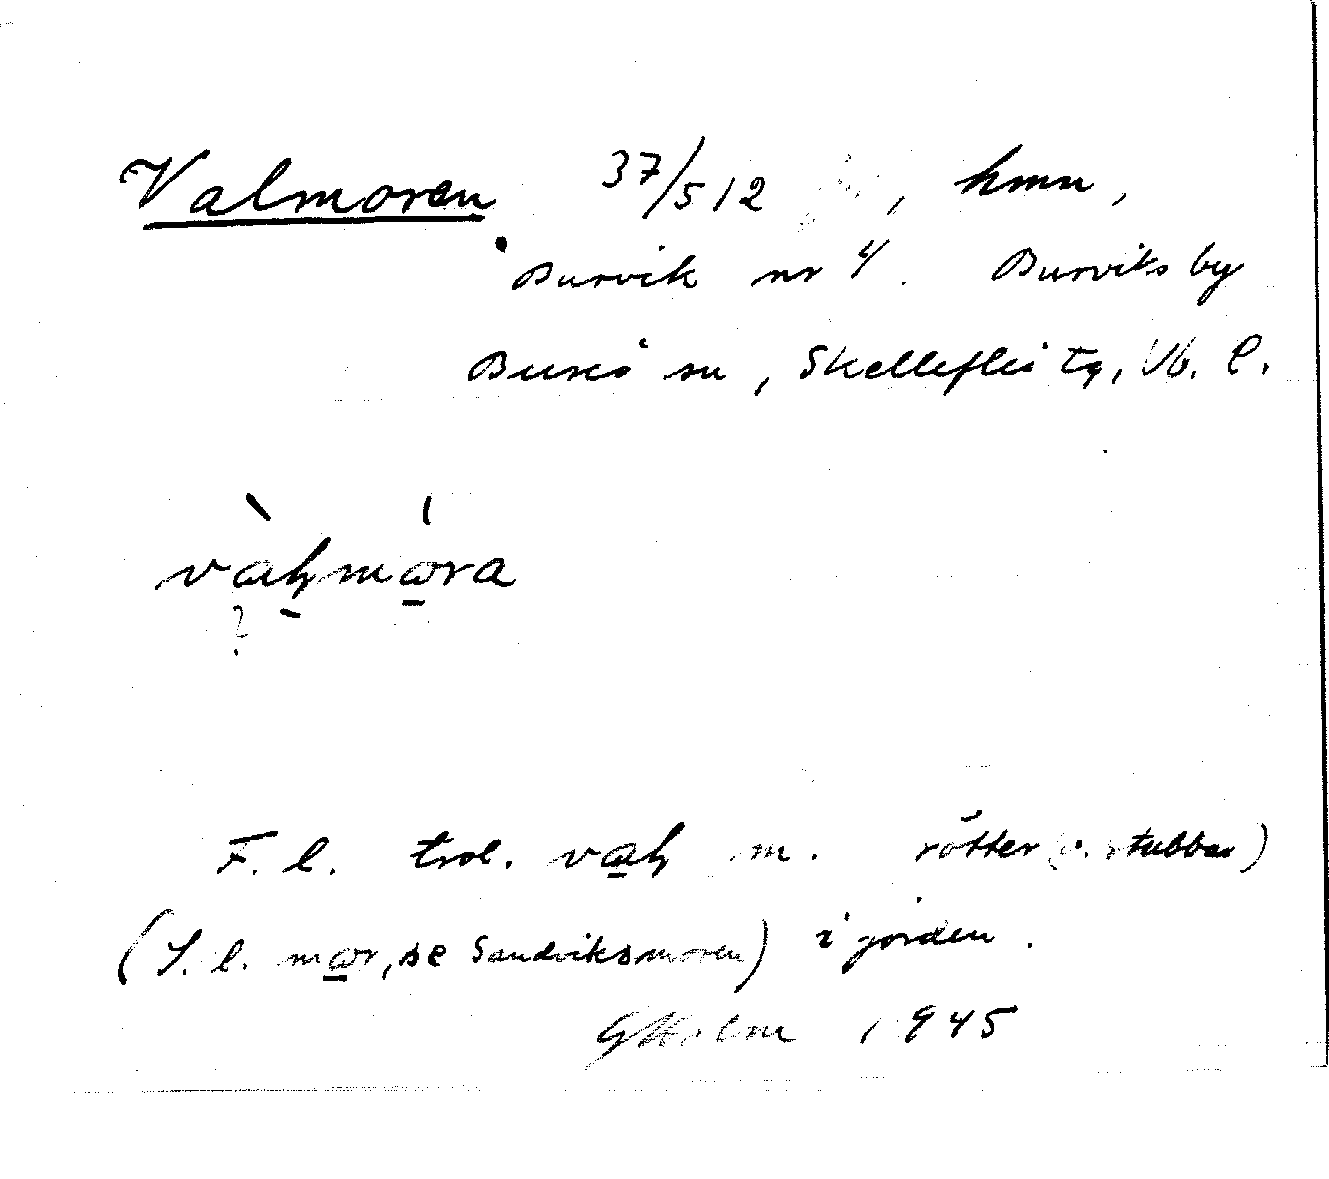 Valmoren 37/512 , hmn ,
Burvik nr 4. Burviks by
Bureå sn, Skellefteå tg, Vb. l.
vàḷmóra
?
F. l. trol. vaḷ m. rötter (o. stubbar)
(S. l. mor, se Sandviksmoren) i jorden.
GHolm 1945